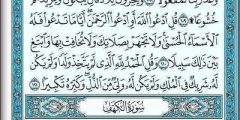 خُشُوعًا ۩ ١٠٩ قُلِ ٱدْعُوا۟ ٱللَّهَ أَوِ ٱدْعُوا۟ ٱلرَّحْمَٰنَ أَيًّا مَّا تَدْعُوا۟ فَلَهُ
ٱلْأَسْمَآءُ ٱلْحُسْنَىٰ وَلَا تَجْهَرْ بِصَلَاتِكَ وَلَا تُخَافِتْ بِهَا وَٱبْتَغِ
بَيْنَ ذَٰلِكَ سَبِيلًا ١١٠ وَقُلِ ٱلْحَمْدُ لِلَّهِ ٱلَّذِى لَمْ يَتَّخِذْ وَلَدًا وَلَمْ يَكُن
لَّهُۥ شَرِيكٌ فِى ٱلْمُلْكِ وَلَمْ يَكُن لَّهُۥ وَلِىٌّ مِّنَ ٱلذُّلِّ وَكَبِّرْهُ تَكْبِيرًا ١١١
سُورَةُ ٱلْكَهْفِ